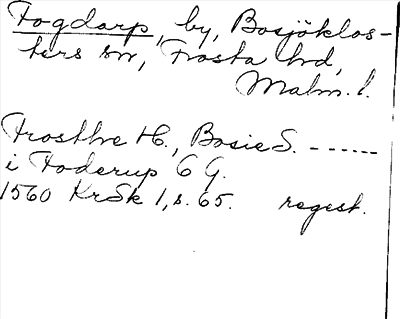 Fogdarp, by, Bosjöklos-
ters sn, Frosta hd,
Malm. l.
Frosthe H., Bosie S. ------
i Foderup 6 G.
1560 KrSk 1, s. 65. regest.